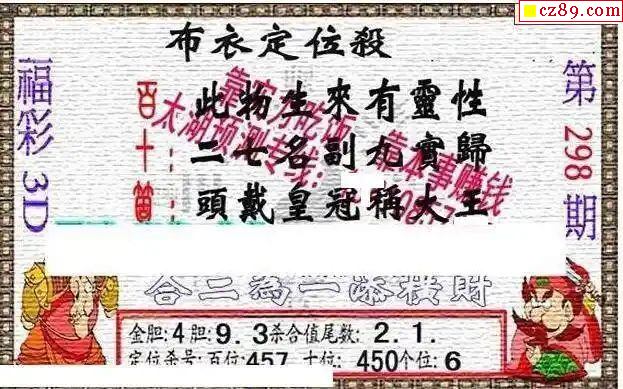 cz89.com
布衣定位殺
福彩3D
第298期
百
十
此物生來有靈性
二七名副九實歸
頭戴皇冠稱大王
靠实力吃饭
靠本事赚钱
太湖预测专线:
合二為一
財
金胆:4胆:9.3杀合值尾数:2.1.
定位杀号:百位:457 十位:450个位:6